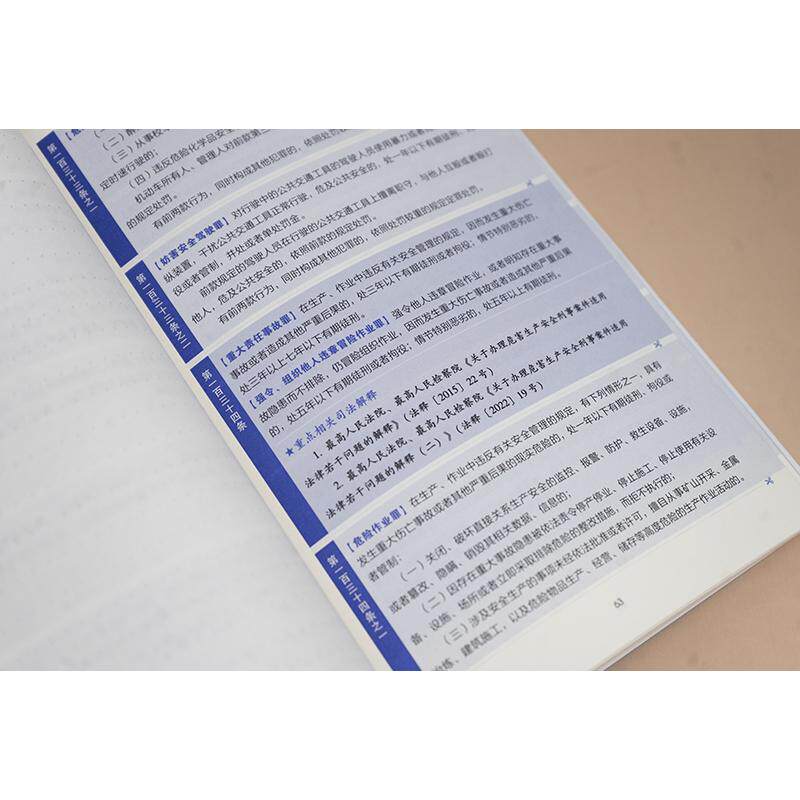 第一百三十三条之一
(三)从事校
定时速行驶的;
(四)违反危险化学品安全
机动车所有人、管理人对前款第三
的规定处罚。
有前两款行为,同时构成其他犯罪的,依照处罚
第一百三十三条之二
【妨害安全驾驶罪】对行驶中的公共交通工具的驾驶人员使用暴力或者
纵装置,干扰公共交通工具正常行驶,危及公共安全的,处一年以下有期徒刑、
役或者管制,并处或者单处罚金。
前款规定的驾驶人员在行驶的公共交通工具上擅离职守,与他人互殴或者殴打
他人,危及公共安全的,依照前款的规定处罚。
有前两款行为,同时构成其他犯罪的,依照处罚较重的规定定罪处罚。
第一百三十四条
【重大责任事故罪】在生产、作业中违反有关安全管理的规定,因而发生重大伤亡
事故或者造成其他严重后果的,处三年以下有期徒刑或者拘役;情节特别恶劣的,
处三年以上七年以下有期徒刑。
【强令、组织他人违章冒险作业罪】强令他人违章冒险作业,或者明知存在重大事
故隐患而不排除,仍冒险组织作业,因而发生重大伤亡事故或者造成其他严重后果
的,处五年以下有期徒刑或者拘役;情节特别恶劣的,处五年以上有期徒刑。
★重点相关司法解释
1. 最高人民法院、最高人民检察院《关于办理危害生产安全刑事案件适用
法律若干问题的解释》(法释〔2015〕22号)
2. 最高人民法院、最高人民检察院《关于办理危害生产安全刑事案件适用
法律若干问题的解释(二)》(法释〔2022〕19号)
第一百三十四条之一
【危险作业罪】在生产、作业中违反有关安全管理的规定,有下列情形之一,具有
发生重大伤亡事故或者其他严重后果的现实危险的,处一年以下有期徒刑、拘役或
者管制:
(一)关闭、破坏直接关系生产安全的监控、报警、防护、救生设备、设施,
或者篡改、隐瞒、销毁其相关数据、信息的;
(二)因存在重大事故隐患被依法责令停产停业、停止施工、停止使用有关设
备、设施、场所或者立即采取排除危险的整改措施,而拒不执行的;
(三)涉及安全生产的事项未经依法批准或者许可,擅自从事矿山开采、金属
冶炼、建筑施工,以及危险物品生产、经营、储存等高度危险的生产作业活动的。
63